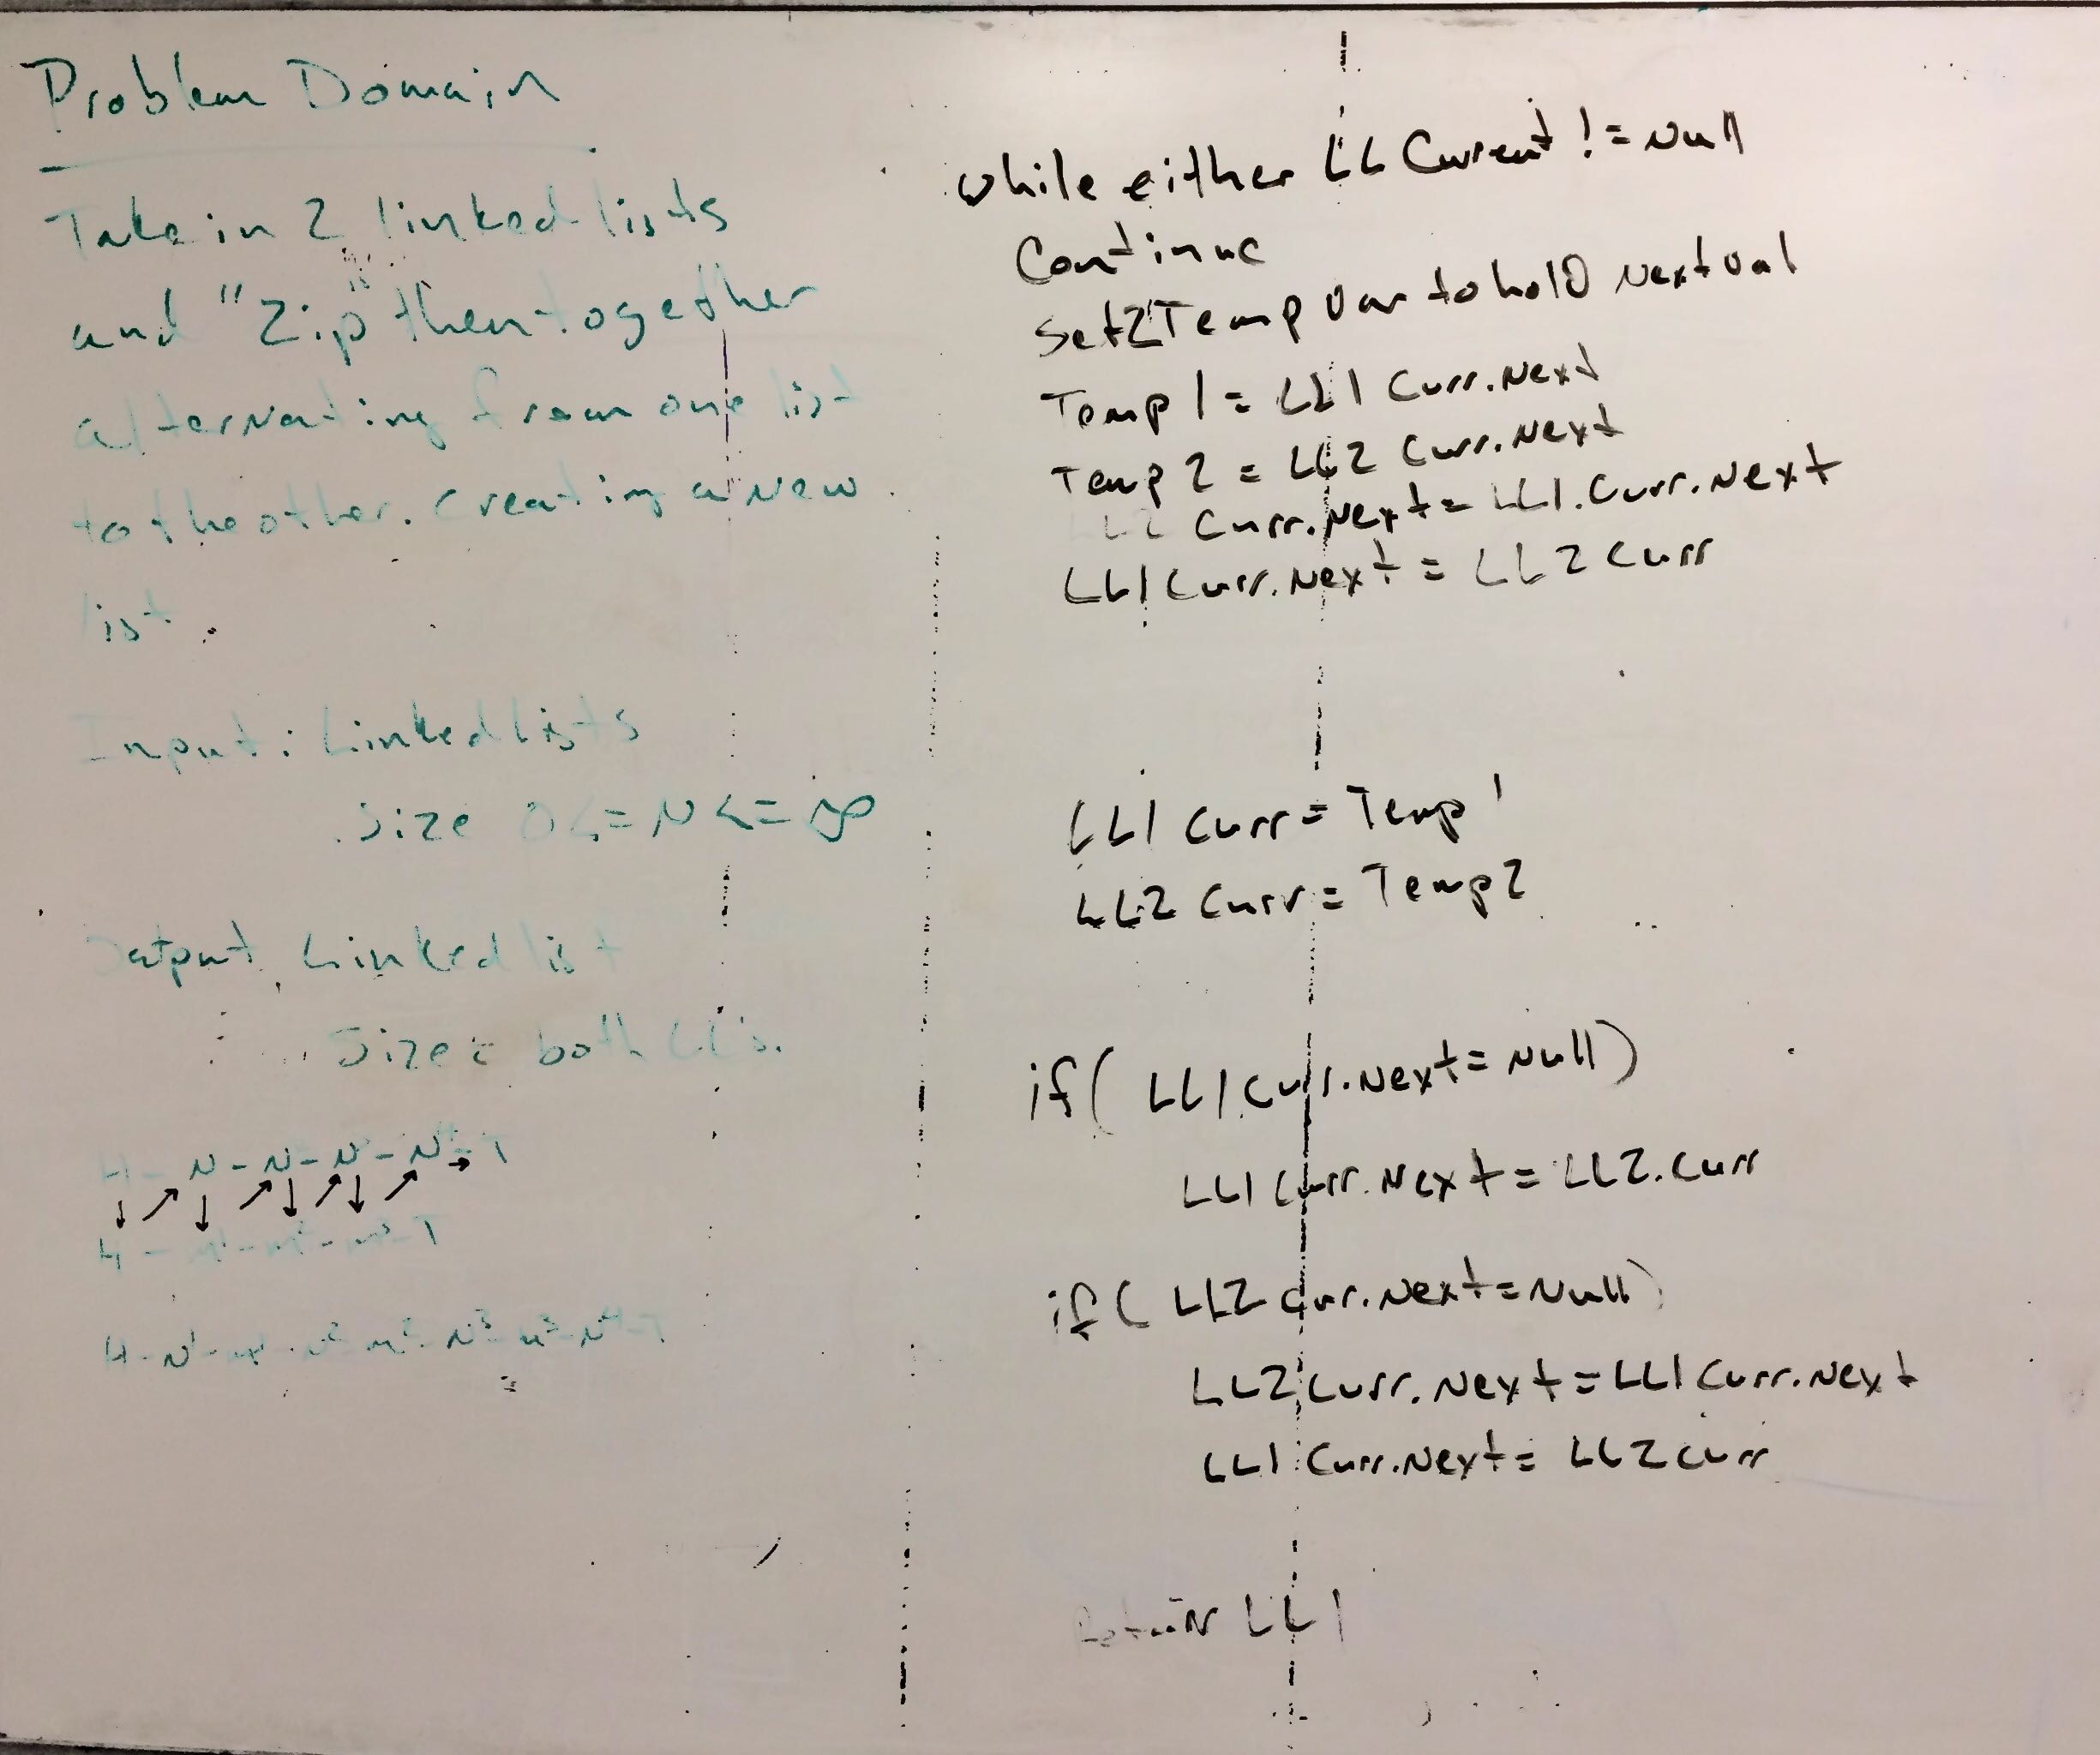 Problem Domain
Take in 2 linked lists
and "Zip" them together
alternating from one list
to the other. Creating a New
list.
Input: Linked lists
Size 0<=N<=∞
Output Linked list
Size = both LL's.
H - N - N - N - N - T
H - - T
while either LL Current != Null
Continue
Set 2 Temp Var to hold Next val
Temp 1 = LL1 Curr.Next
Temp 2 = LL2 Curr.Next
LL2 Curr.Next = LL1.Curr.Next
LL1 Curr.Next = LL2 Curr
LL1 Curr = Temp 1
LL2 Curr = Temp 2
if( LL1 Curr.Next = Null)
LL1 Curr.Next = LL2.Curr
if( LL2 Curr.Next = Null)
LL2 Curr.Next = LL1 Curr.Next
LL1 Curr.Next = LL2 Curr
Return LL1